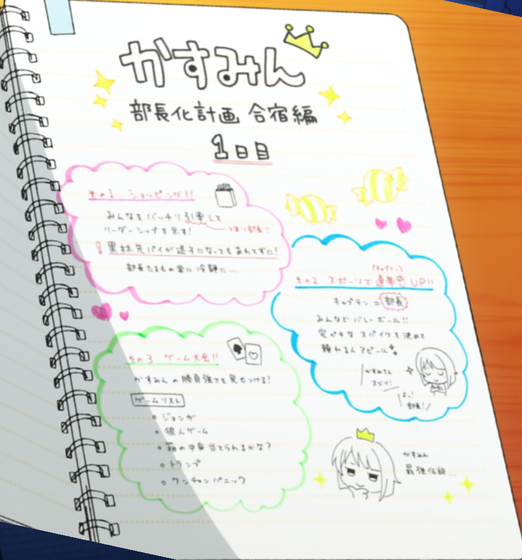 かすみん
部長化計画 合宿編
1日目
その1 ショッピング!!
みんなをバッチリ引率して
リーダーシップを示す!
つまり部長!
果林先パイが迷子になってもあんてずに!
部長たるもの常に冷静に…
(キャプテン)
その2 スポーツで連帯感UP!!
キャプテン=部長
みんなでバレーボール!!
完ペキなスパイクを決めて
頼れるアピール
かすみさん
スゴイ!
よっ!
部長!
その3 ゲーム大会!!
かすみんの勝負強さを見せつける!
ゲームリスト
ジェンガ
狼人ゲーム
箱の中身当てられるかな?
トランプ
ワンチャンパニック
かすみん
最強伝説…